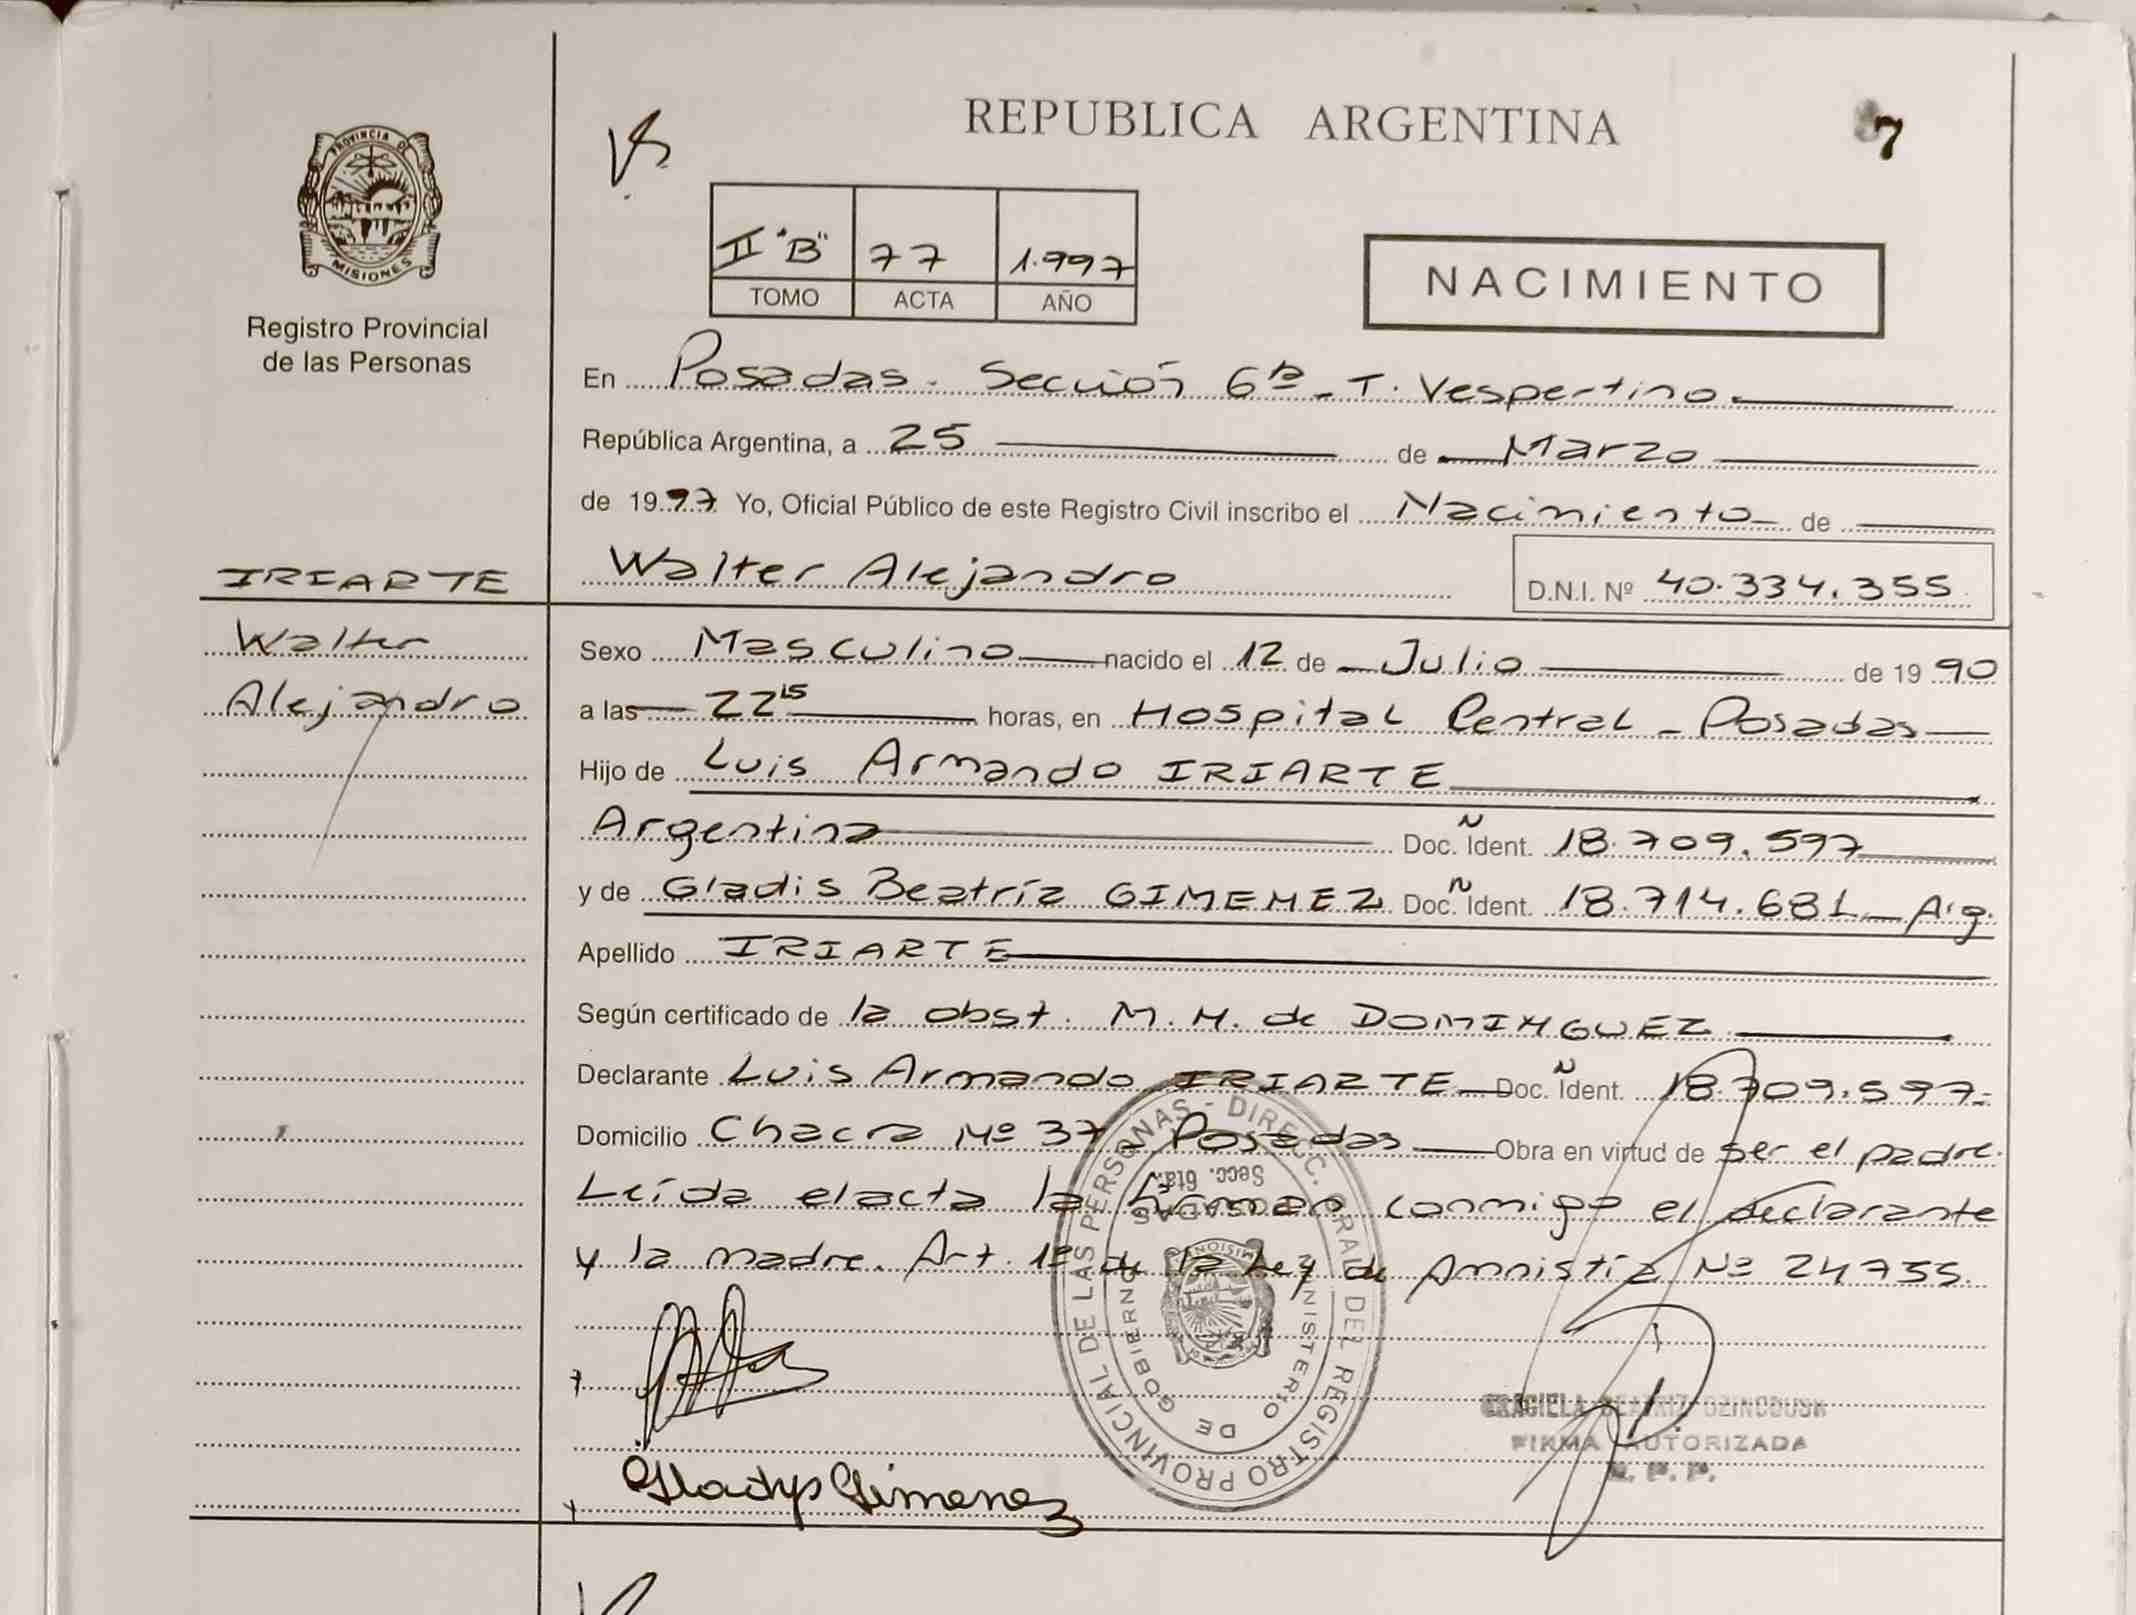 REPUBLICA ARGENTINA
7
PROVINCIA DE
MISIONES
Registro Provincial
de las Personas
II "B" 77 1.997
TOMO ACTA AÑO
NACIMIENTO
En Posadas - Sección 6ta - T. Vespertino.
República Argentina, a 25 de Marzo
de 1997 Yo, Oficial Público de este Registro Civil inscribo el Nacimiento de
IRIARTE
Walter Alejandro
D.N.I. Nº 40.334.355
Walter
Alejandro
Sexo Masculino nacido el 12 de Julio de 1990
a las 22 15 horas, en Hospital Central - Posadas
Hijo de Luis Armando IRIARTE
Argentina Doc. Ñ Ident. 18.709.597
y de Gladis Beatríz GIMENEZ Doc. Ñ Ident. 18.714.681 - Arg.
Apellido IRIARTE
Según certificado de la obst. M. H. de DOMINGUEZ
Declarante Luis Armando IRIARTE Doc. Ñ Ident. 18.709.597.-
Domicilio Chacra Nº 37 - Posadas Obra en virtud de ser el padre.
Leída el acta la firman conmigo el declarante
y la madre. Art. 1º de la Ley de Amnistía Nº 24755.
REGISTRO PROVINCIAL DE LAS PERSONAS - DIRECC. GRAL. DEL
MINISTERIO DE GOBIERNO
Secc. 6ta.
POSADAS
Gladys Gimenez
GRACIELA BEATRIZ
FIRMA AUTORIZADA
R. P. P.